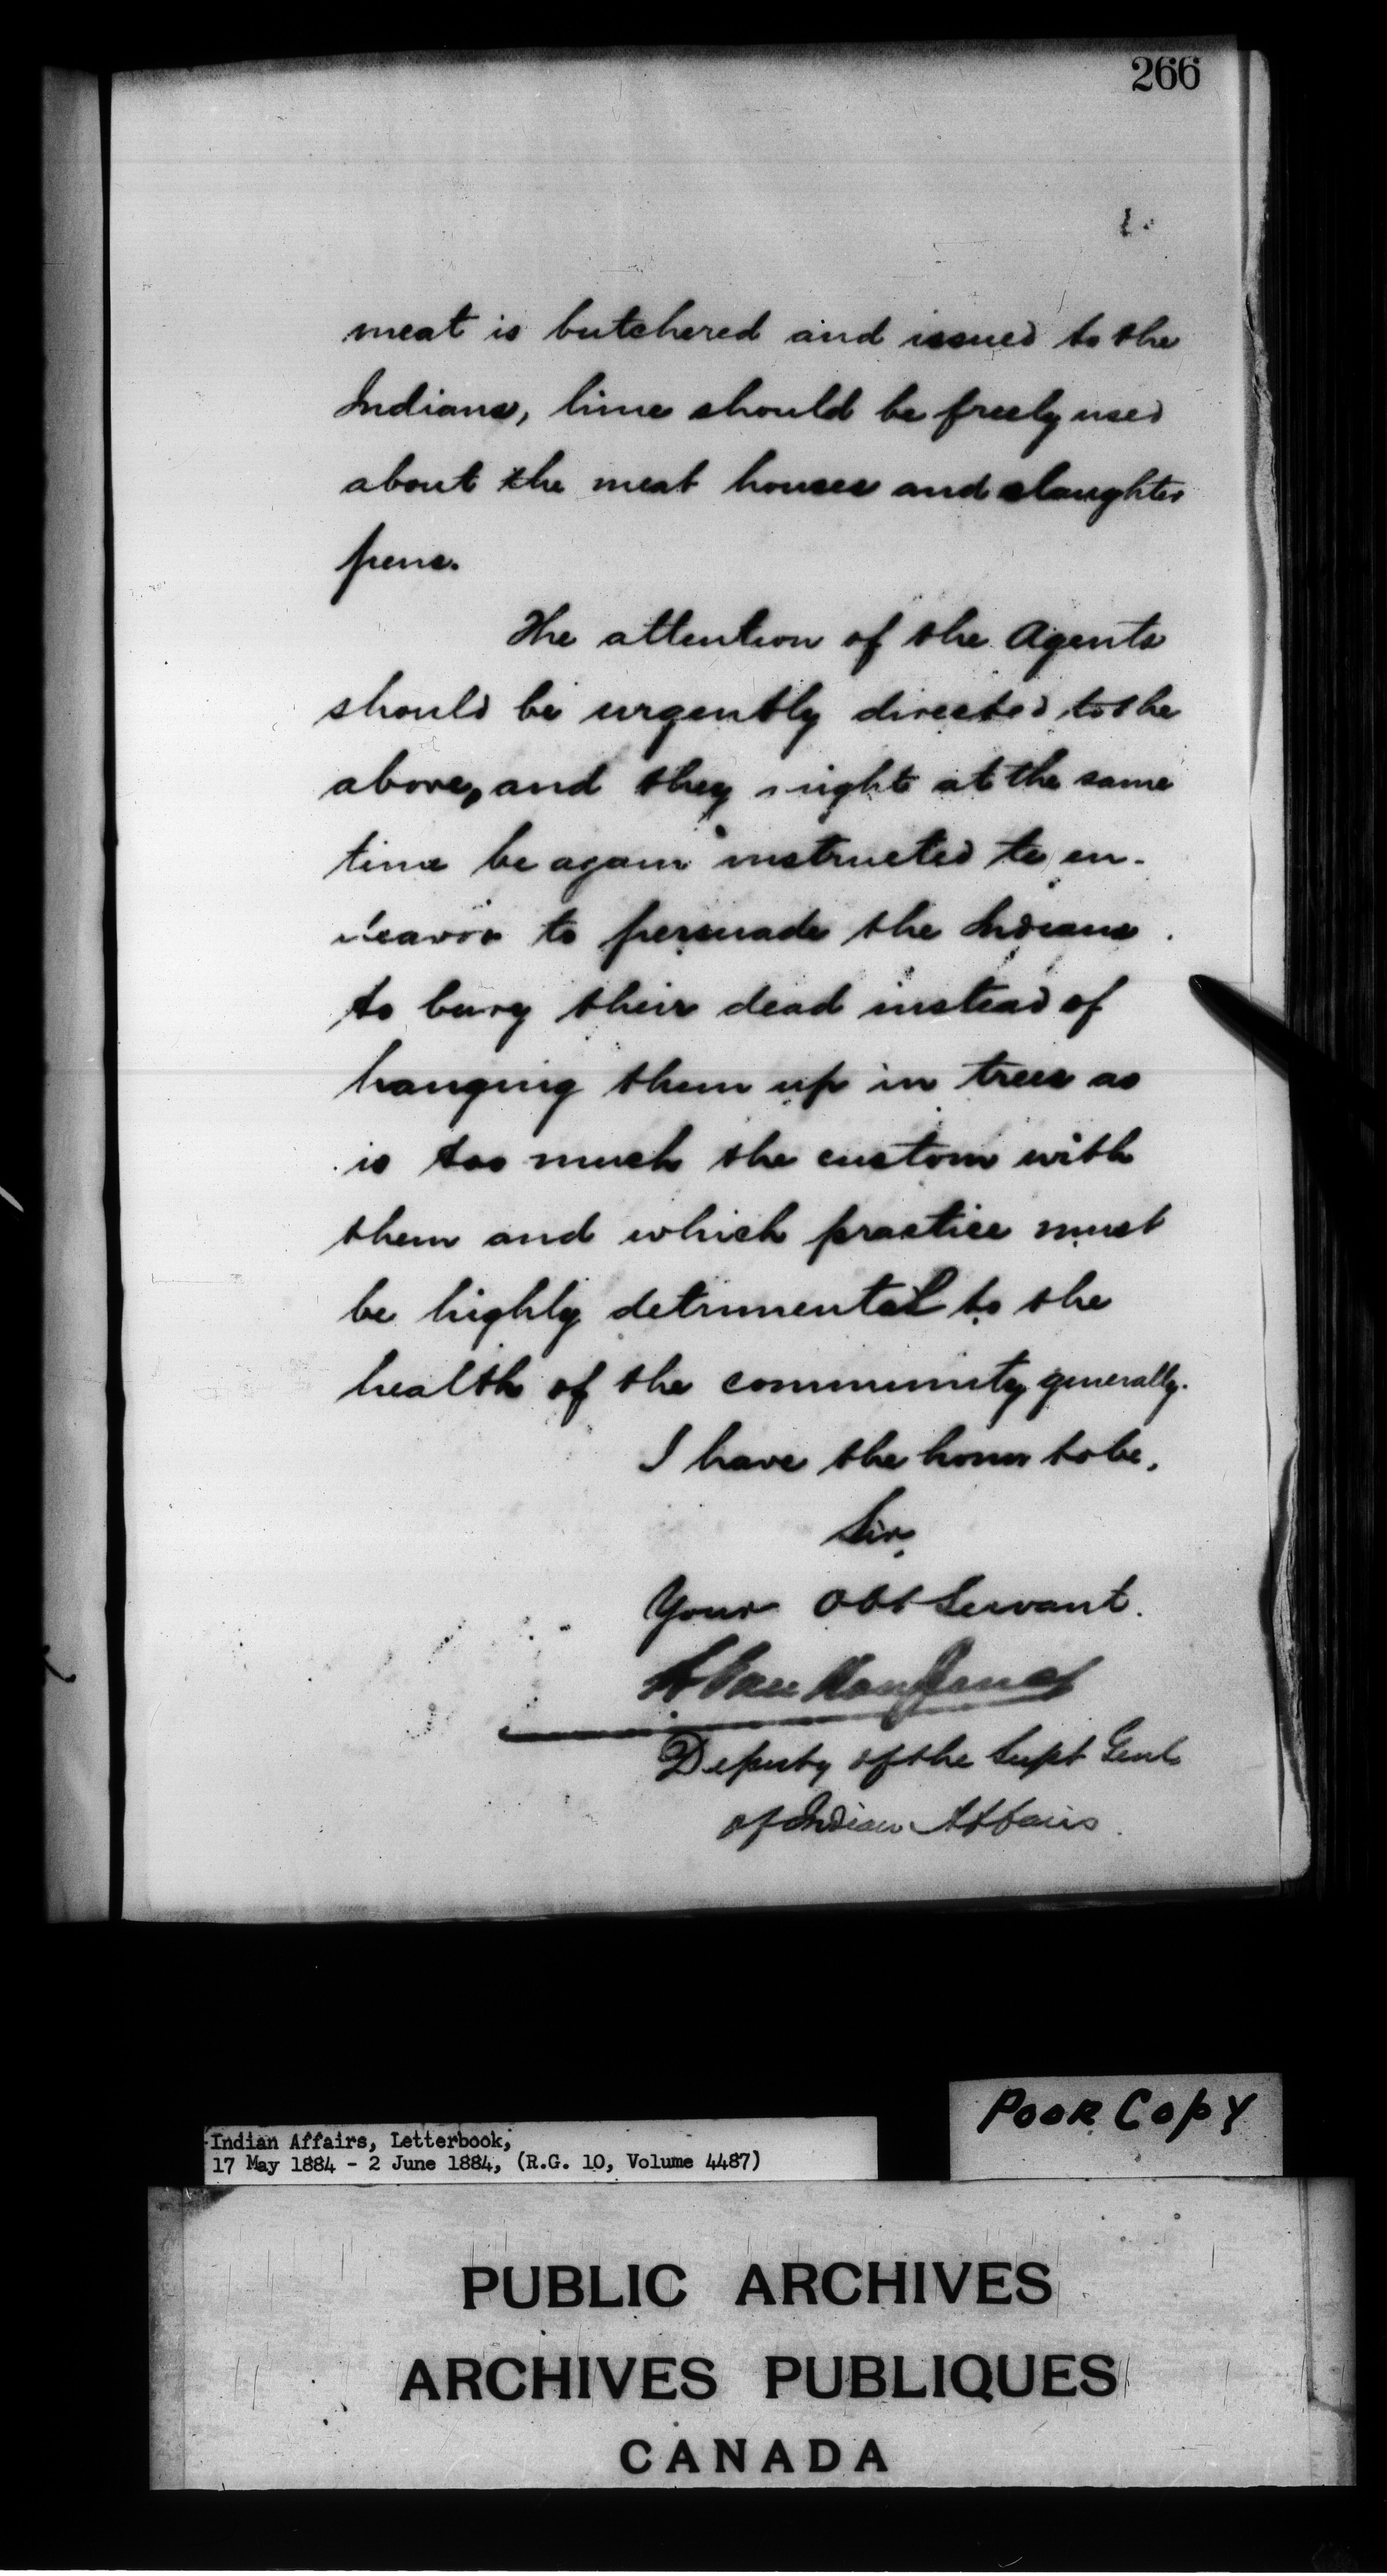 266
meat is butchered and issued to the
Indians, lime should be freely used
about the meat houses and slaughter
pens.
The attention of the Agents
should be urgently directed to the
above, and they might at the same
time be again instructed to en-
deavor to persuade the Indians
to bury their dead instead of
hanging them up in trees as
is too much the custom with
them and which practice must
be highly detrimental to the
health of the community generally.
I have the honor to be,
Sir,
Your Obt Servant.
L Vankoughnet
Deputy of the Supt Genl
of Indian Affairs.
POOR COPY
Indian Affairs, Letterbook,
17 May 1884 - 2 June 1884, (R.G. 10, Volume 4487)
PUBLIC ARCHIVES
ARCHIVES PUBLIQUES
CANADA